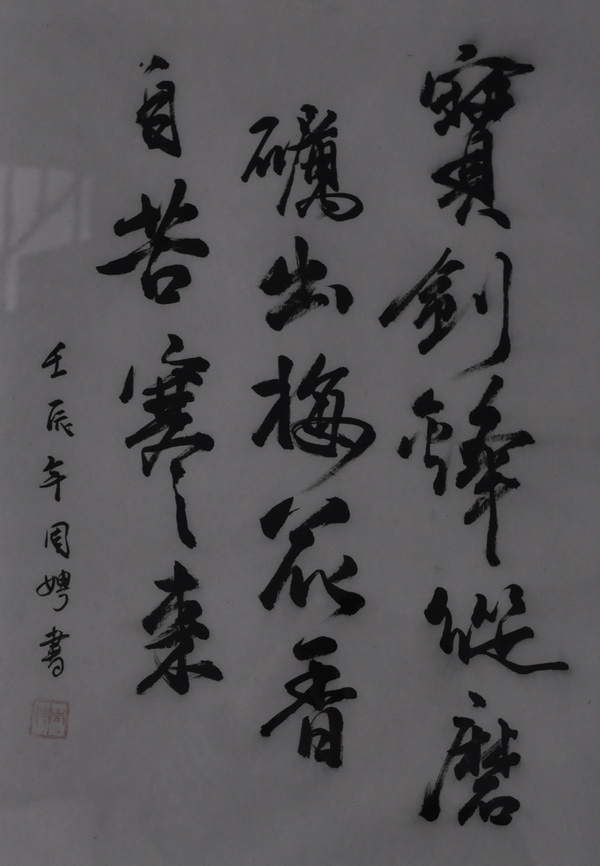 寶劍鋒從磨
礪出梅花香
自苦寒來
壬辰年周娉書